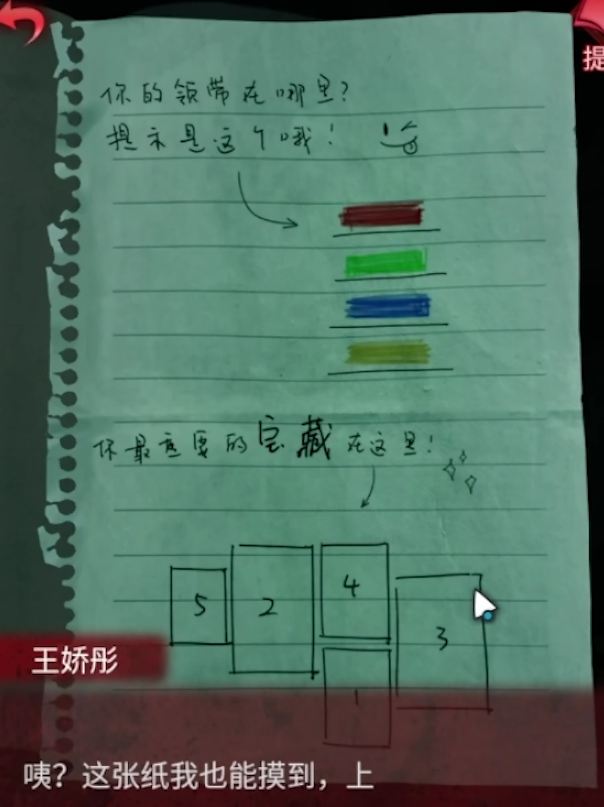 提
你的领带在哪里?
提示是这个哦!
你最重要的宝藏在这里!
5
2
4
3
1
王娇彤
咦?这张纸我也能摸到,上